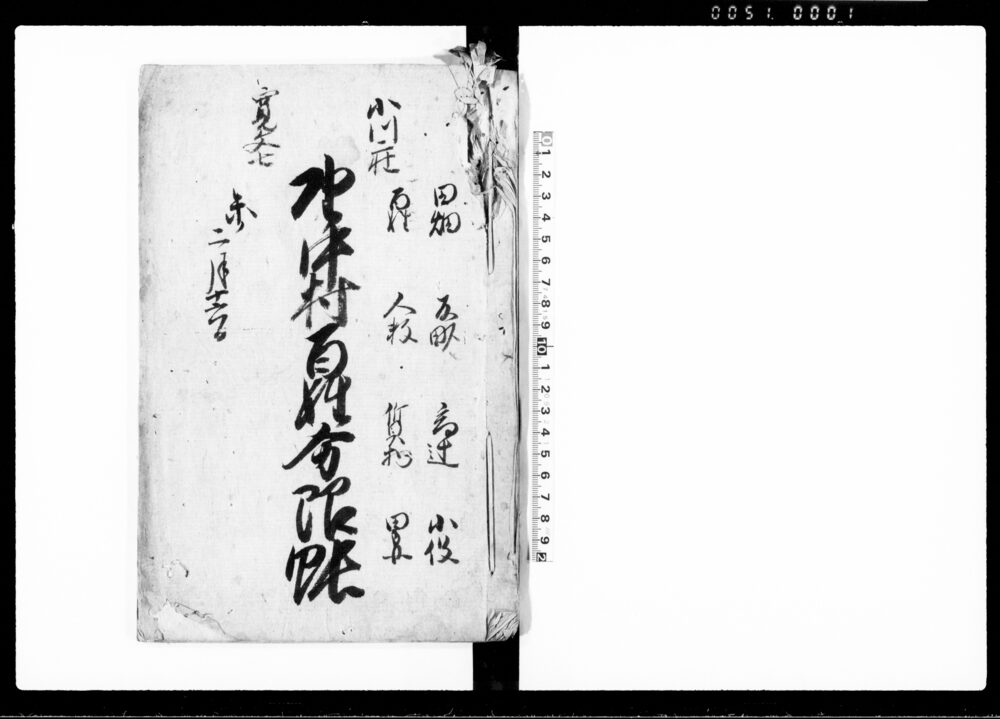 0051 0001
田畑 反畝 高辻 小役
百姓 人数
小川荘
村百姓分限帳
寛文七
未
二月十六日
0 1 2 3 4 5 6 7 8 9 10 1 2 3 4 5 6 7 8 9 2